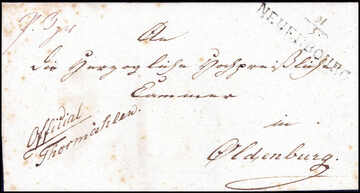 NEUENBOURG
An
die Herzogliche Hochpreisliche
Cammer
in
Oldenburg.
Official
Thormählen.